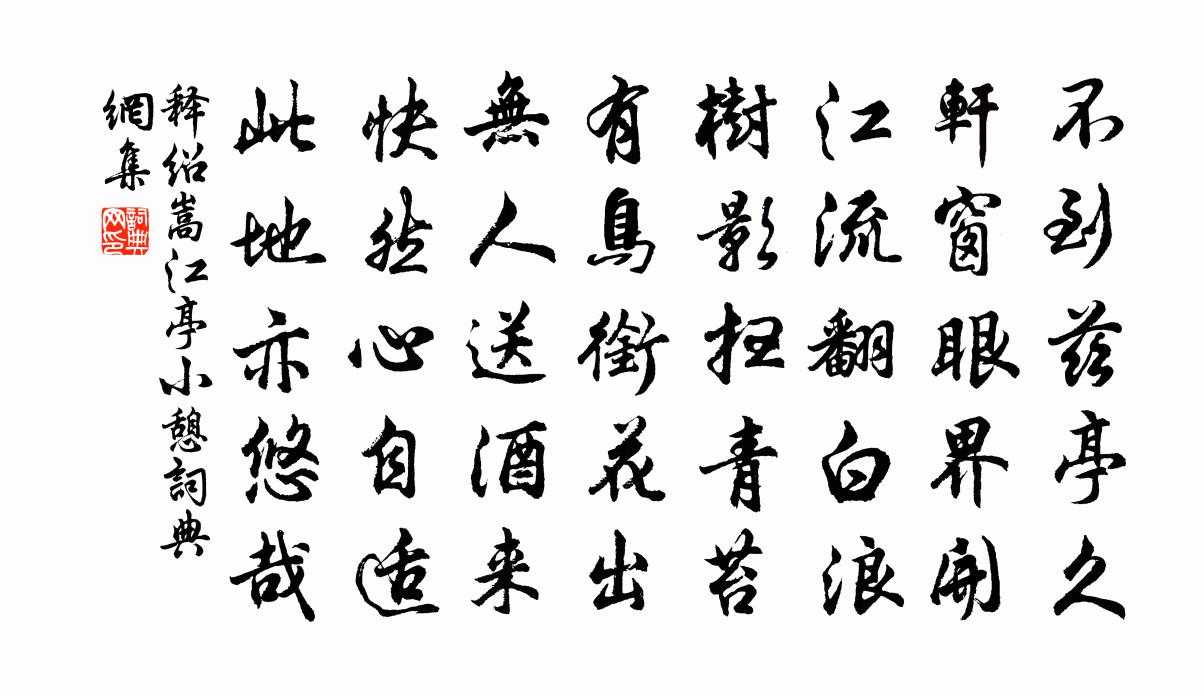 不到茲亭久
軒窗眼界開
江流翻白浪
樹影掃青苔
有鳥銜花出
無人送酒来
快然心自适
此地亦悠哉
释绍嵩江亭小憩詞典
網集
詞典网印